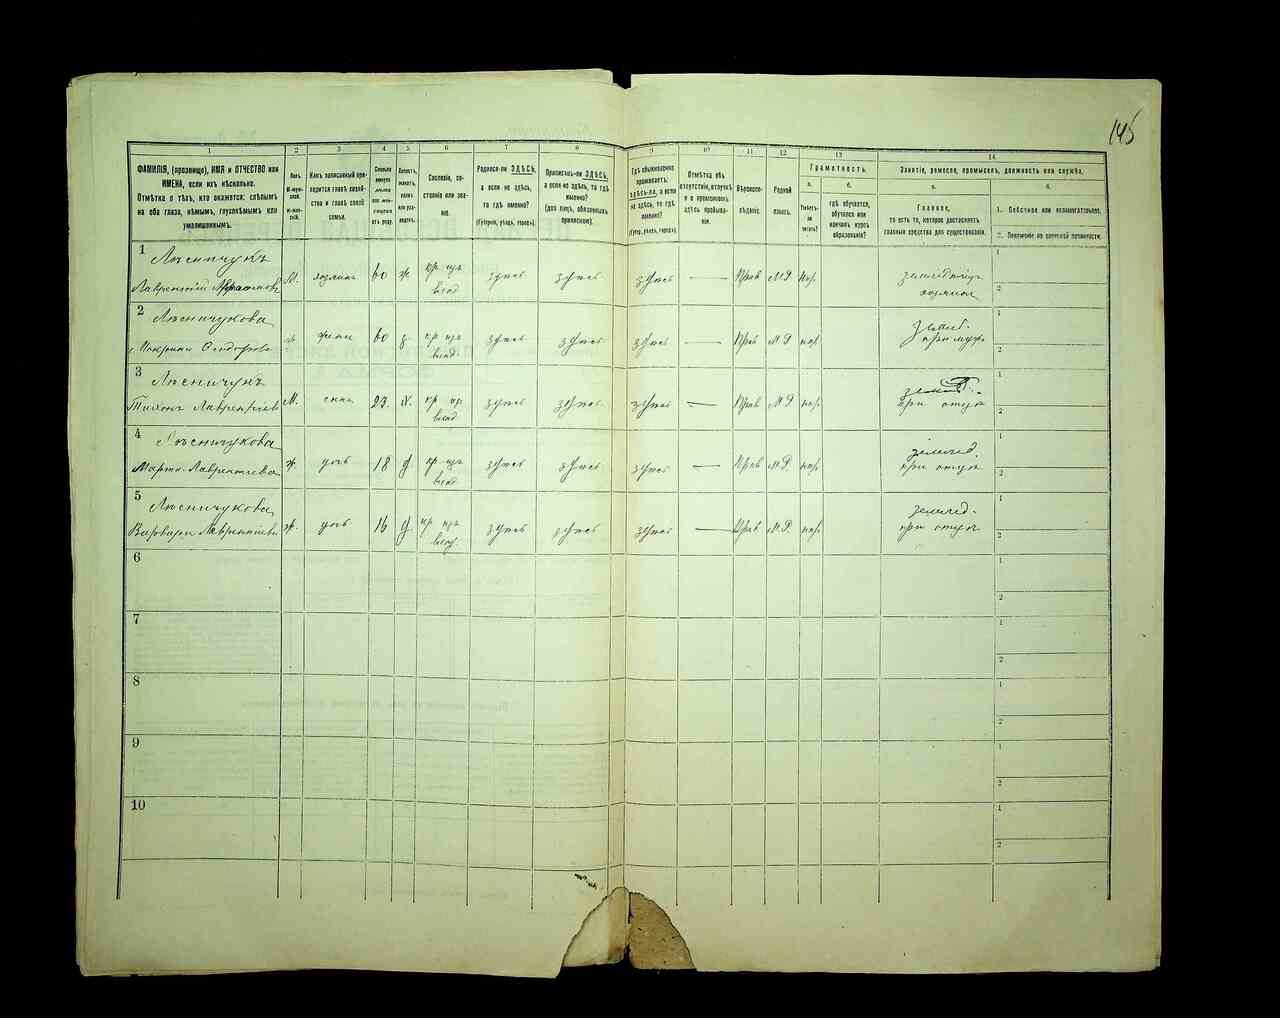 145
1
2
3
4
5
6
7
8
9
10
11
12
13
14
ФАМИЛІЯ, (прозвище), ИМЯ и ОТЧЕСТВО или
ИМЕНА, если ихъ нѣсколько.
Отмѣтка о тѣхъ, кто окажется: слѣпымъ
на оба глаза, нѣмымъ, глухонѣмымъ или
умалишеннымъ.
Полъ.
Какъ записанный при-
ходится главѣ хозяй-
ства и главѣ своей
семьи.
Сколько
минуло
лѣтъ
Холостъ,
женатъ,
вдовъ
или раз-
веденъ.
Сословіе, со-
стояніе или зва-
ніе.
Родился-ли ЗДѢСЬ,
а если не здѣсь,
то гдѣ именно?
(Губернія, уѣздъ, городъ).
Приписанъ-ли ЗДѢСЬ,
а если не здѣсь, то гдѣ
именно?
(для лицъ, обязанныхъ
припискою).
Гдѣ обыкновенно
проживаетъ:
здѣсь-ли, а если
не здѣсь, то гдѣ
именно?
(Губер., уѣздъ, городъ).
Отмѣтка объ
отсутствіи, отлучкѣ
и о временномъ
здѣсь пребыва-
ніи.
Вѣроиспо-
вѣданіе.
Родной
языкъ.
Грамотность.
а.
Умѣетъ-
ли
читать?
б.
гдѣ обучается,
обучался или
кончилъ курсъ
образованія?
Занятіе, ремесло, промыселъ, должность или служба.
а.
Главное,
то есть то, которое доставляетъ
главныя средства для существованія.
б.
1. Побочное или вспомогательное.
2. Положеніе по воинской повинности.
1 Лѣсничукъ
Лаврентій М. хозяинъ 60 ж. кр изъ влад здѣсь здѣсь здѣсь — Прав М.Р. нѣт земледѣлецъ хозяинъ
2 Лѣсничукова
жена 60 кр изъ влад. здѣсь здѣсь здѣсь — Прав М.Р. нѣт землед. при мужѣ
3 Лѣсничукъ
Тихонъ Лаврентіев М. сынъ 23 х. кр из влад здѣсь здѣсь здѣсь — Прав М.Р. нѣт. землед. при отцѣ
4 Лѣсничукова
Марта Лаврентіева ж дочь 18 д кр изъ влад здѣсь здѣсь здѣсь — Прав М.Р. нѣт землед. при отцѣ
5 Лѣсничукова
Варвара Лаврентіева ж. дочь 16 д кр изъ влад. здѣсь здѣсь здѣсь — Прав М.Р. нѣт землед. при отцѣ
6
7
8
9
10